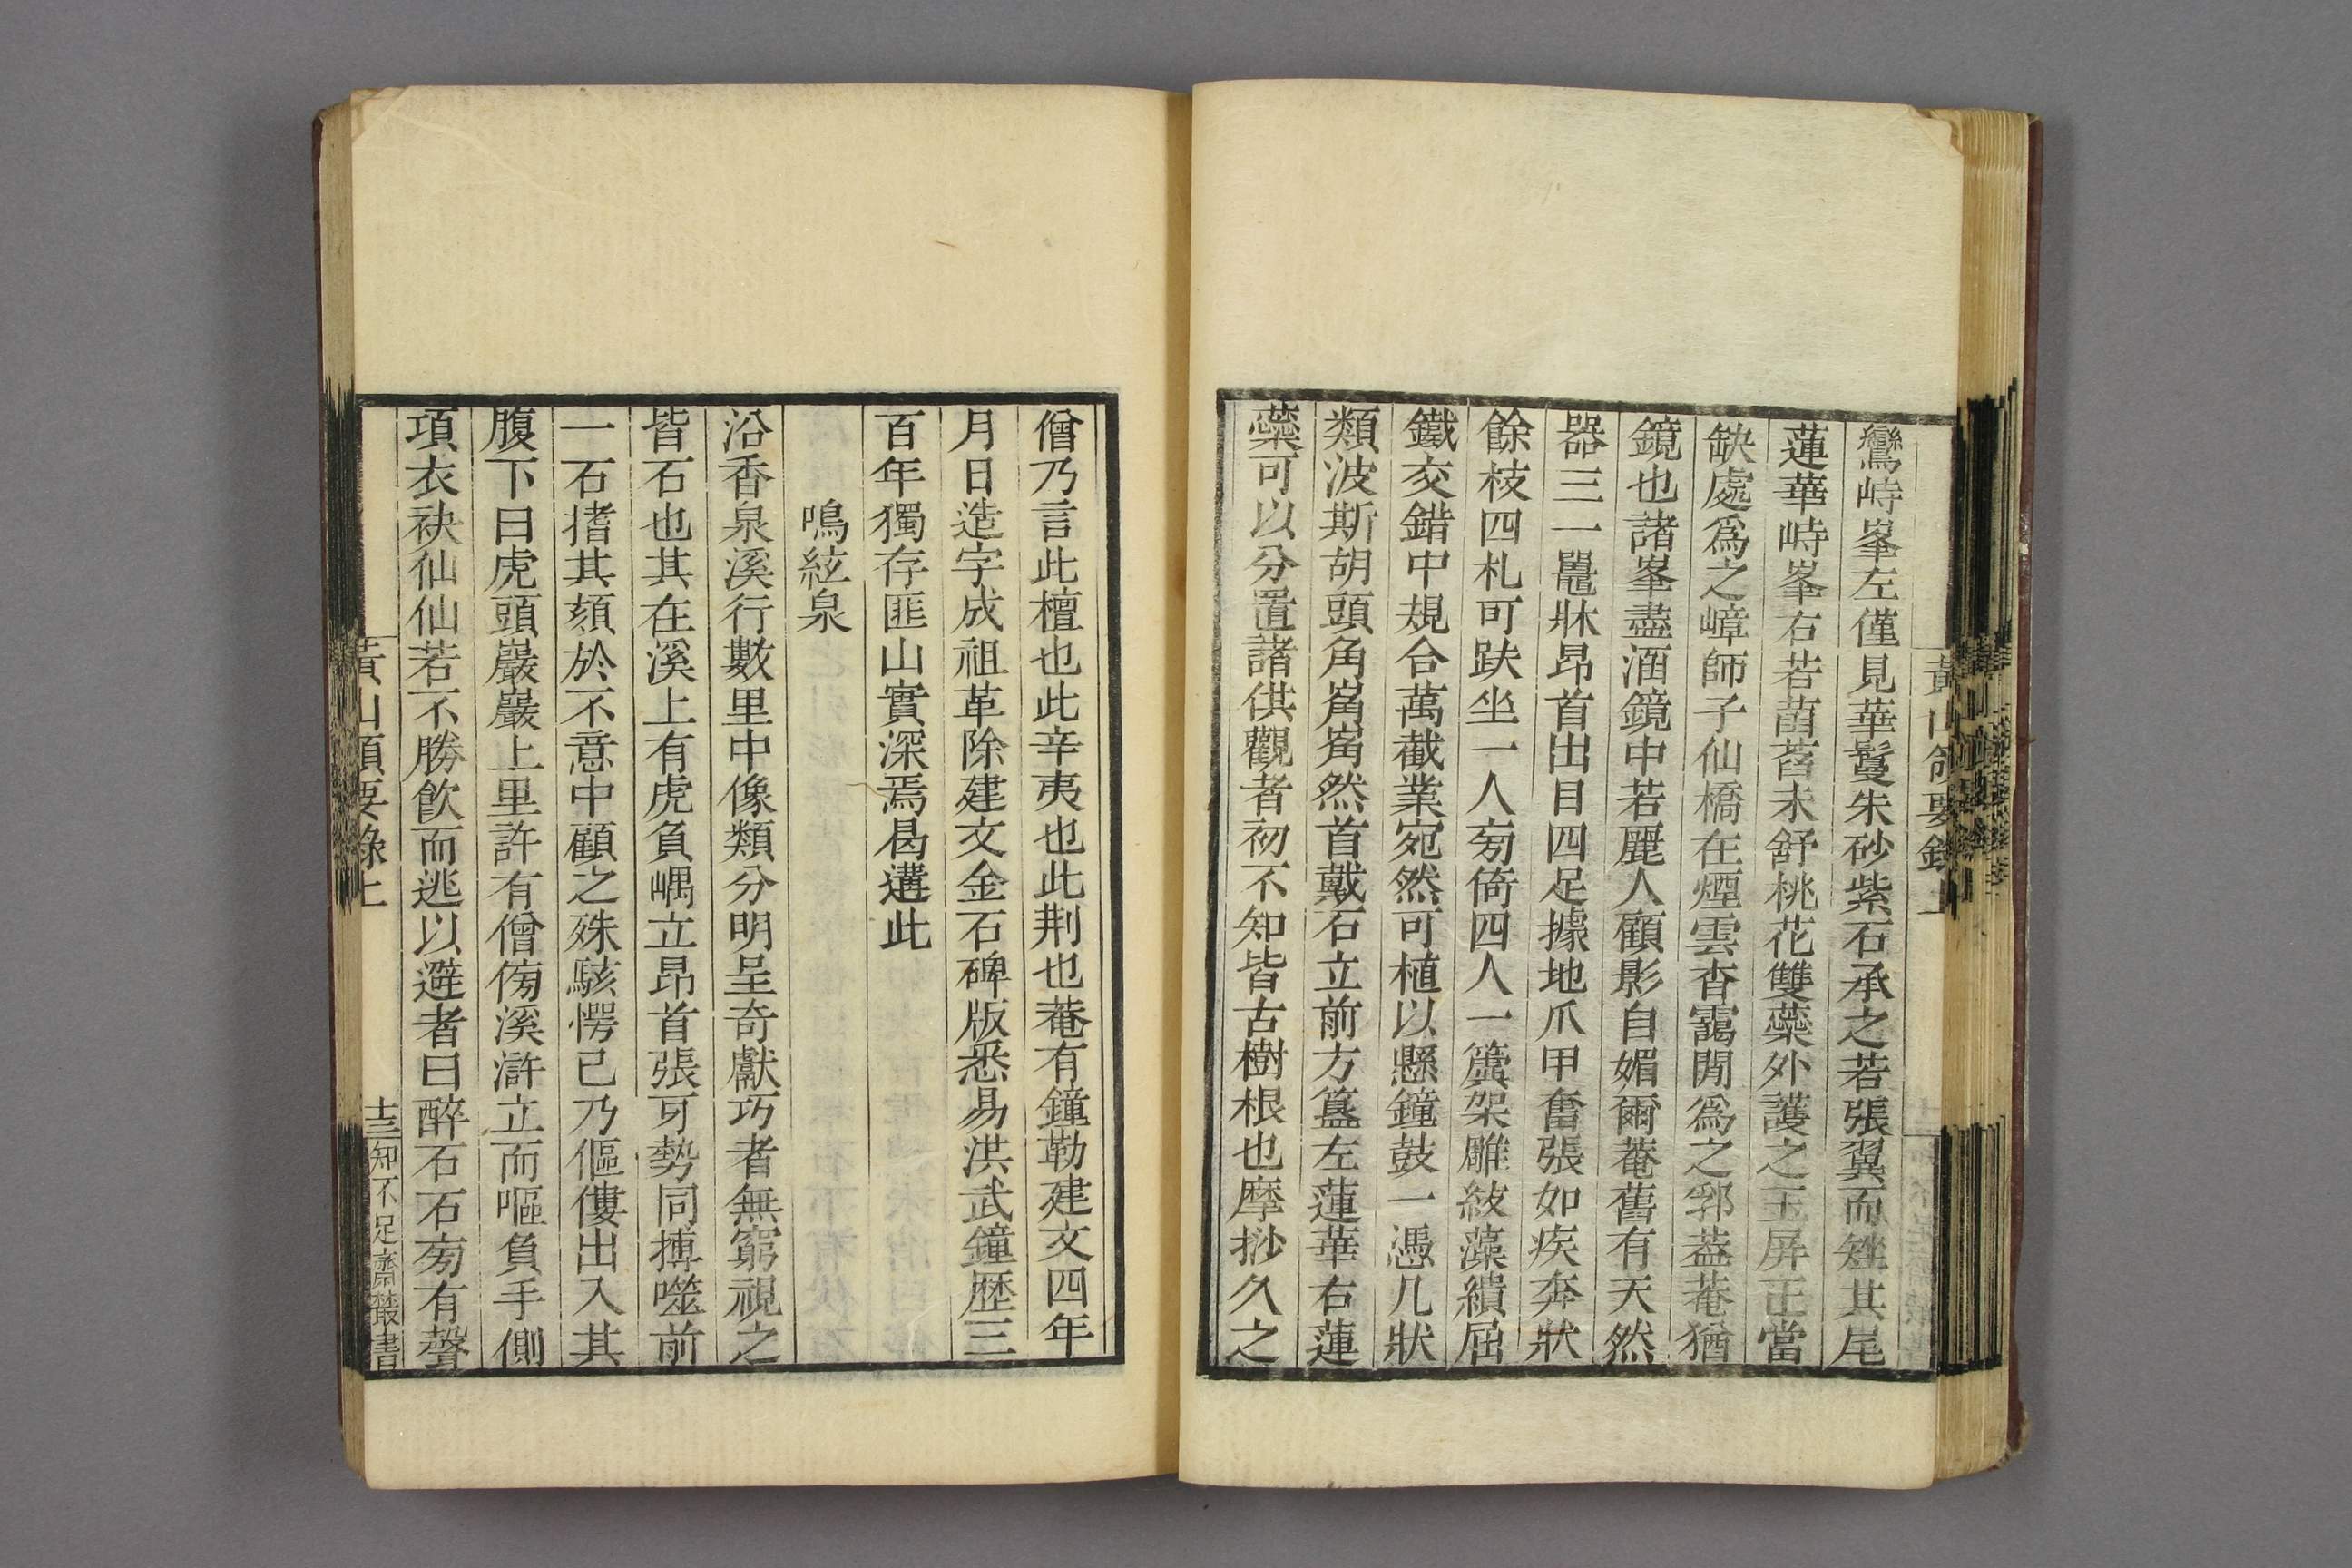 黃山領要錄上
鸞峙峯左僅見華鬘朱砂紫石承之若張翼而矬其尾
蓮華峙峯右若菡萏未舒桃花雙蘂外護之玉屏正當
缺處爲之嶂師子仙橋在煙雲杳靄閒爲之郛葢菴猶
鏡也諸峯盡酒鏡中若麗人顧影自媚爾菴舊有天然
器三一鼉牀昂首出目四足據地爪甲奮張如疾奔狀
餘枝四札可趺坐一人旁倚四人一簴架雕紋藻繢屈
鐵交錯中規合萬截業宛然可植以懸鐘鼓一憑几狀
類波斯胡頭角觺觺然首戴石立前方簋左蓮華右蓮
蘂可以分置諸供觀者初不知皆古樹根也摩挱久之
僧乃言此檀也此辛夷也此荆也菴有鐘勒建文四年
月日造字成祖革除建文金石碑版悉易洪武鐘歷三
百年獨存匪山實深焉曷遘此
鳴絃泉
沿香泉溪行數里中像類分明呈奇獻巧者無窮視之
皆石也其在溪上有虎負嵎立昂首張牙勢同搏噬前
一石搘其頦於不意中顧之殊駭愕已乃傴僂出入其
腹下曰虎頭巖巖上里許有僧傍溪滸立而嘔負手側
項衣袂仙仙若不勝飮而逃以避者曰醉石石旁有聲
黃山領要錄上
十三
知不足齋叢書